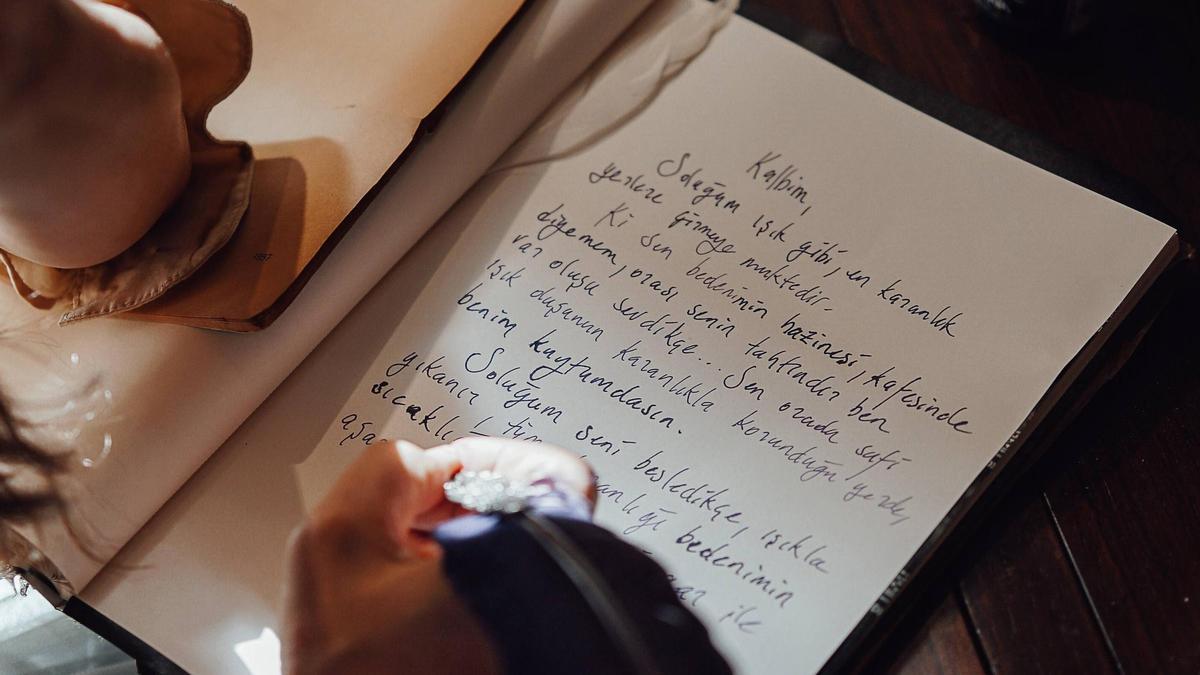 Kalbim,
Soluğum ışık gibi, en karanlık
yerlere girmeye muktedir.
Ki sen bedenimin hazinesi, kafesinde
diyemem, orası senin tahtındır ben
var oluşu sevdikçe... Sen orada safi
ışık kuşanan karanlıkla korunduğu yerde,
benim kuytumdasın.
Soluğum seni besledikçe, ışıkla
yıkanır tüm bedenimin
ile